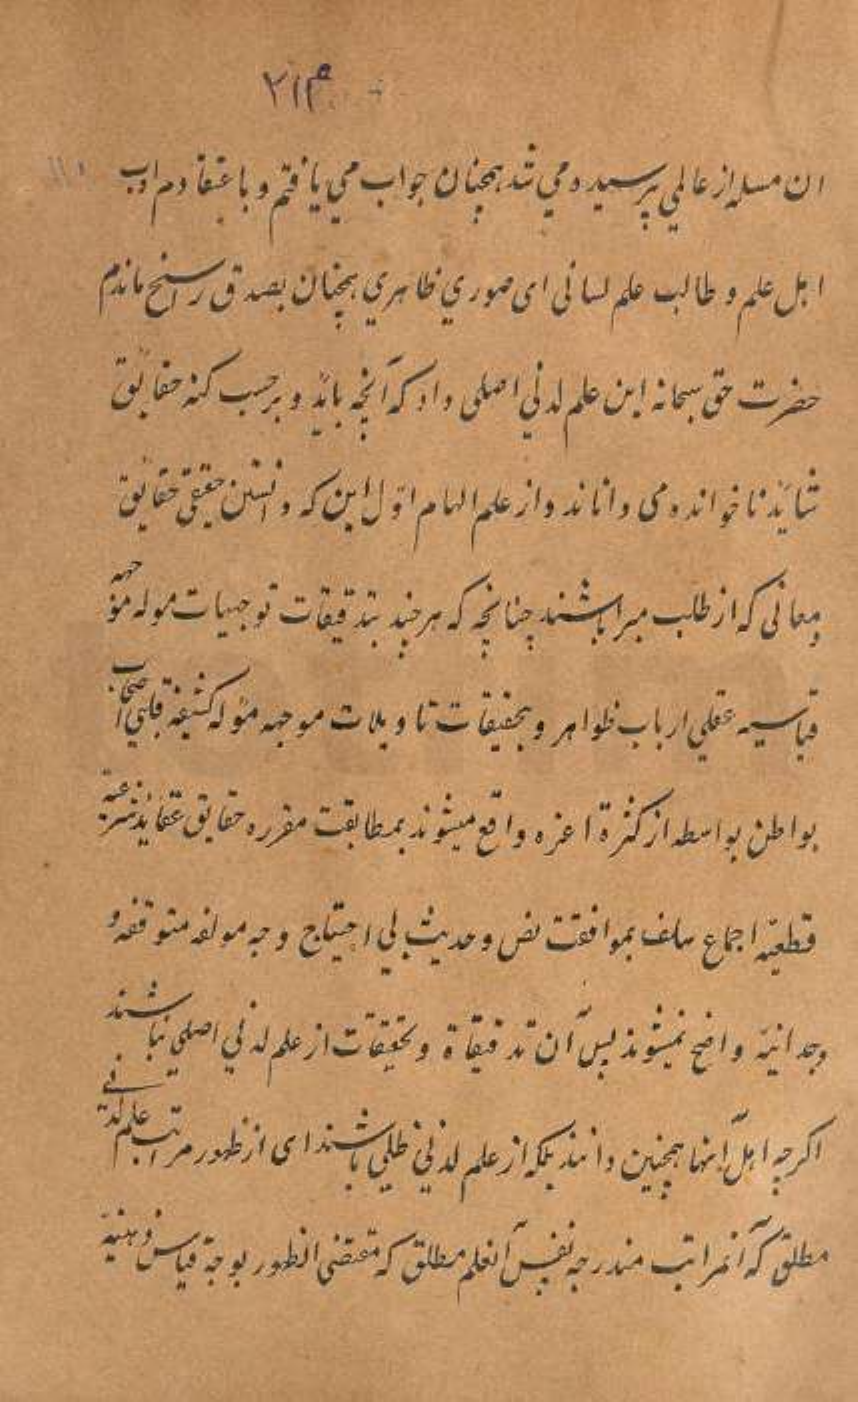 ۲۱۳م
ان مسله از عالمي پرسیده می شد همچنان جواب می یافتم و با عتقاد م ادب
اهل علم و طالب علم لسانی ای صوري ظاهري همچنان بصدق راسخ ماندم
حضرت حق سبحانه این علم لدني اصلی داد که آنچه باید و برحسب کنه حقایق
شاید نا خوانده می داناند و از علم الهام اوّل این که دانستن حقیقی حقایق
معانی که از طلب مبرا باشند چنانچه که هر چند بتدقیقات توجیهات موله موجهه
قیاسیه عقلي ارباب ظواهر و بتحقیقات تاویلات موجهه موله کشیفه قلبي اصحاب
بواطن بواسطه از کثرة اعزه واقع میشوند بمطابقت مقرره حقایق عقاید شرعیه
قطعیّه اجماع سلف بموافقت نص و حدیث بي احتیاج وجه مولفه متوقفه و
وجدانیّه واضح نمیشوند پس آن تدقیقاة و تحقیقات از علم لدني اصلي نباشند
اکرچه اهل آنها همچنین دانند بلکه از علم لدني ظلي باشند ای از ظهور مراتب علم لدني
مطلق که آنمراتب مندرجه نفس آنعلم مطلق که مقتضی الظهور بوجه قیاس ذهنیّه